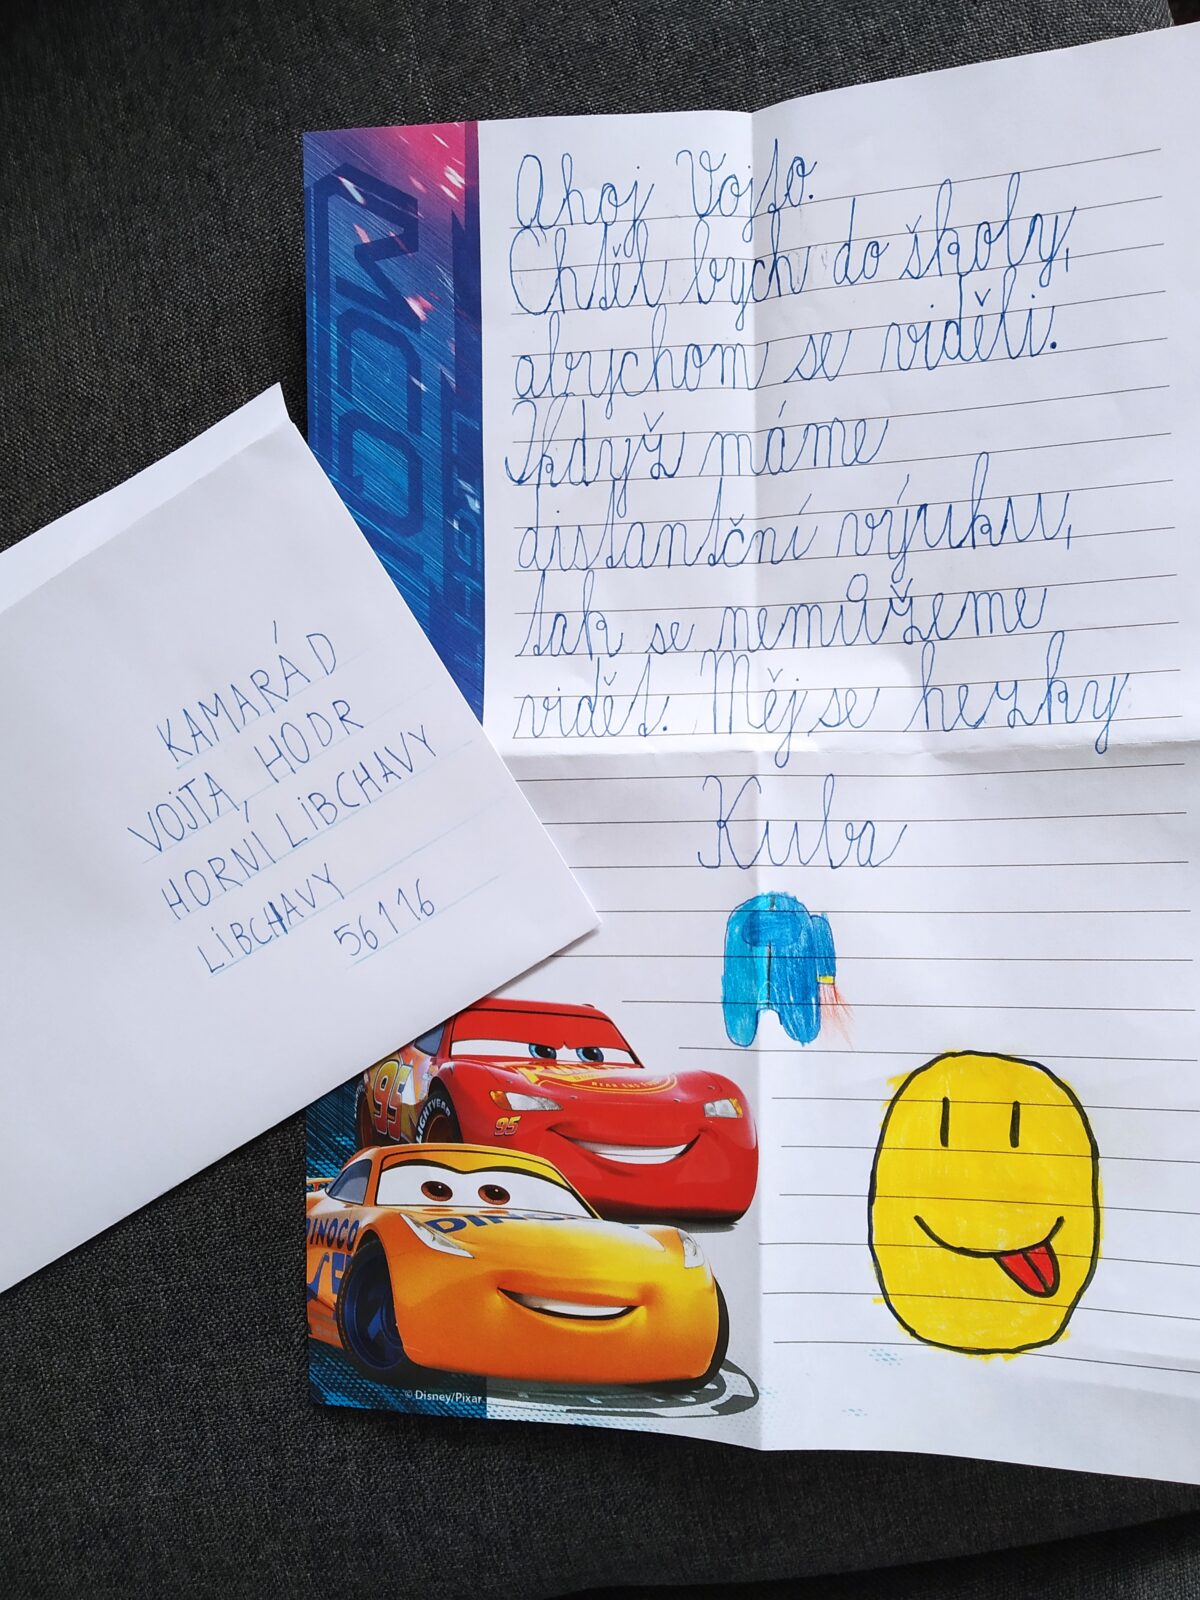 Ahoj Vojto.
Chtěl bych do školy,
abychom se viděli.
Když máme
distanční výuku,
tak se nemůžeme
vidět. Měj se hezky
Kuba
KAMARÁD
VOJTA, HODR
HORNÍ LIBCHAVY
LIBCHAVY
56116
95
LIGHTYEAR
95
DINOCO
DINOCO
© Disney/Pixar